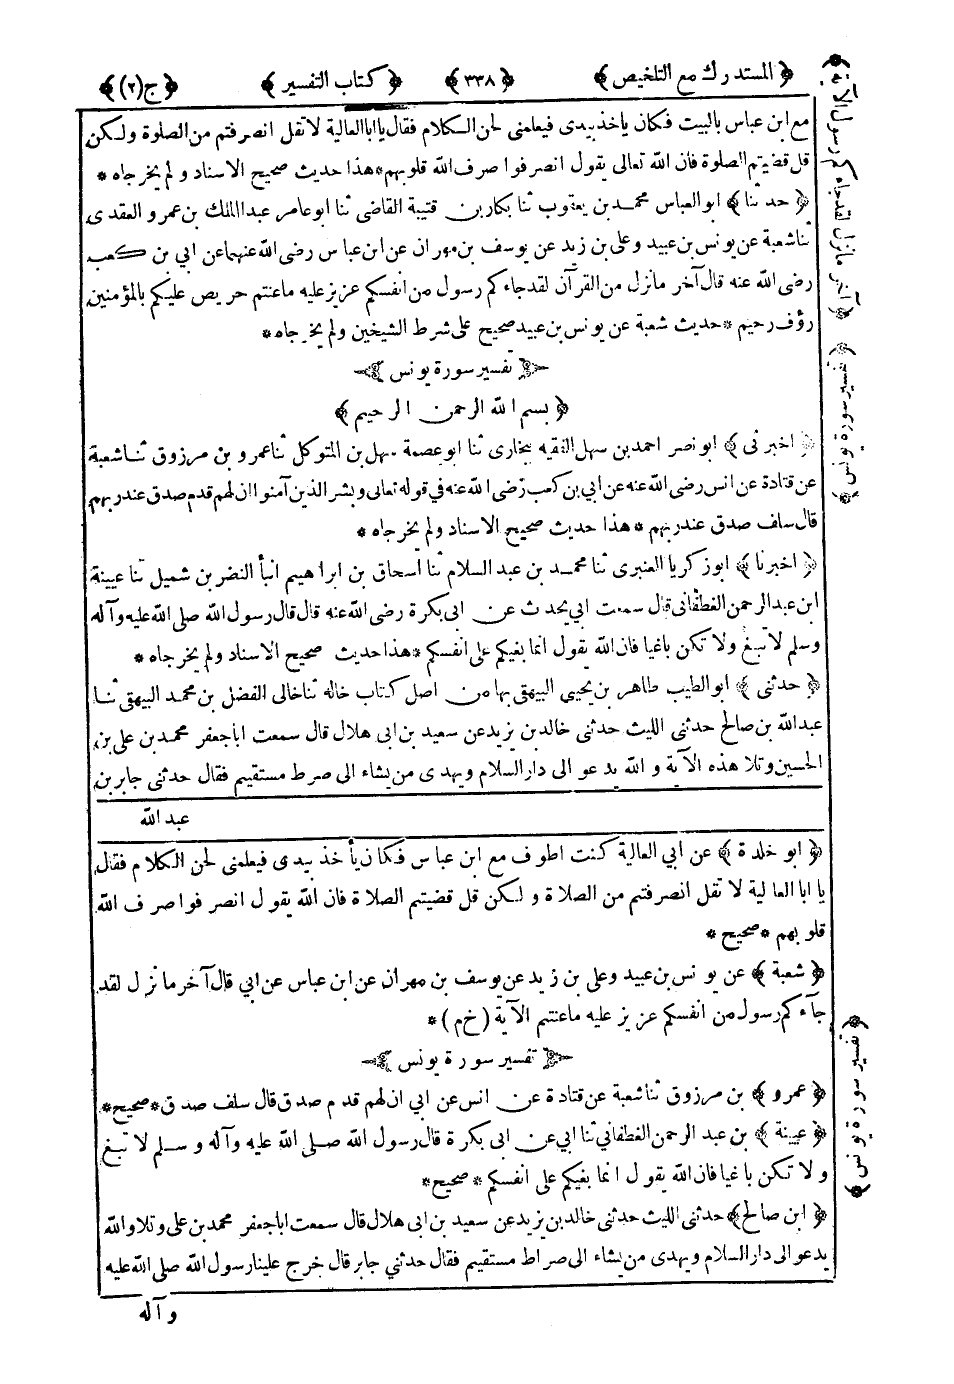 ﴿ المستدرك مع التلخيص ﴾ ﴿ ٣٣٨ ﴾ ﴿ كتاب التفسير ﴾ ﴿ ج (٢) ﴾
مع ابن عباس بالبيت فكان ياخذ بيدى فيعلمنى لحن الكلام فقال يا ابا العالية لا تقل انصرفتم من الصلوة ولكن
قل قضيتم الصلوة فان الله تعالى يقول انصرفوا صرف الله قلوبهم * هذا حديث صحيح الاسناد ولم يخرجاه *
﴿ حدثنا ﴾ ابو العباس محمد بن يعقوب ثنا بكار بن قتيبة القاضى ثنا ابو عامر عبد الملك بن عمرو العقدى
ثنا شعبة عن يونس بن عبيد وعلى بن زيد عن يوسف بن مهران عن ابن عباس رضى الله عنهما عن ابي بن كعب
رضى الله عنه قال آخر ما نزل من القرآن لقد جاءكم رسول من انفسكم عزيز عليه ما عنتم حريص عليكم بالمؤمنين
رؤف رحيم * حديث شعبة عن يونس بن عبيد صحيح على شرط الشيخين ولم يخرجاه *
﴿ تفسير سورة يونس ﴾
﴿ بسم الله الرحمن الرحيم ﴾
﴿ اخبرنى ﴾ ابو نصر احمد بن سهل الفقيه ببخارى ثنا ابو عصمة سهل بن المتوكل ثنا عمرو بن مرزوق ثنا شعبة
عن قتادة عن انس رضى الله عنه عن ابي بن كعب رضى الله عنه فى قوله تعالى وبشر الذين آمنوا ان لهم قدم صدق عند ربهم
قال سلف صدق عند ربهم * هذا حديث صحيح الاسناد ولم يخرجاه *
﴿ اخبرنا ﴾ ابو زكريا العنبرى ثنا محمد بن عبد السلام ثنا اسحاق بن ابراهيم انبأ النضر بن شميل ثنا عيينة
ابن عبد الرحمن الغطفانى قال سمعت ابى يحدث عن ابى بكرة رضى الله عنه قال قال رسول الله صلى الله عليه وآله
وسلم لا تبغ ولا تكن باغيا فان الله يقول انما بغيكم على انفسكم * هذا حديث صحيح الاسناد ولم يخرجاه *
﴿ حدثنى ﴾ ابو الطيب طاهر بن يحيى البيهقى بها من اصل كتاب خاله ثنا خالى الفضل بن محمد البيهقى ثنا
عبد الله بن صالح حدثنى الليث حدثنى خالد بن يزيد عن سعيد بن ابى هلال قال سمعت ابا جعفر محمد بن على بن
الحسين وتلا هذه الآية والله يدعو الى دار السلام ويهدى من يشاء الى صرط مستقيم فقال حدثنى جابر بن
عبد الله
﴿ ابو خلدة ﴾ عن ابي العالية كنت اطوف مع ابن عباس فكان يأخذ بيدى فيعلمنى لحن الكلام فقال
يا ابا العالية لا تقل انصرفتم من الصلاة ولكن قل قضيتم الصلاة فان الله يقول انصرفوا صرف الله
قلوبهم * صحيح *
﴿ شعبة ﴾ عن يونس بن عبيد وعلى بن زيد عن يوسف بن مهران عن ابن عباس عن ابي قال آخر ما نزل لقد
جآءكم رسول من انفسكم عزيز عليه ما عنتم الآية ( خ م ) *
﴿ تفسير سورة يونس ﴾
﴿ عمرو ﴾ بن مرزوق ثنا شعبة عن قتادة عن انس عن ابي ان لهم قدم صدق قال سلف صدق * صحيح *
﴿ عيينة ﴾ بن عبد الرحمن الغطفاني ثنا ابي عن ابى بكرة قال رسول الله صلى الله عليه وآله وسلم لا تبغ
ولا تكن باغيا فان الله يقول انما بغيكم على انفسكم * صحيح *
﴿ ابن صالح ﴾ حدثنى الليث حدثنى خالد بن يزيد عن سعيد بن ابى هلال قال سمعت ابا جعفر محمد بن على وتلا والله
يدعو الى دار السلام ويهدى من يشاء الى صراط مستقيم فقال حدثني جابر قال خرج علينا رسول الله صلى الله عليه
وآله
﴿ آخر ما نزل لقد جاءكم رسول الآية ﴾
﴿ تفسير سورة يونس ﴾
﴿ تفسير سورة يونس ﴾